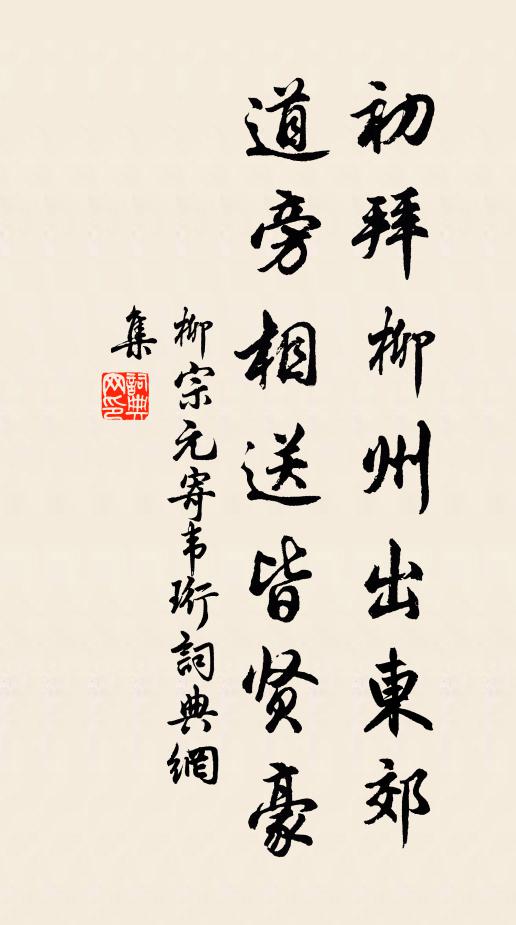 初拜柳州出東郊
道旁相送皆贤豪
柳宗元寄韦珩詞典網
集
詞典
网印